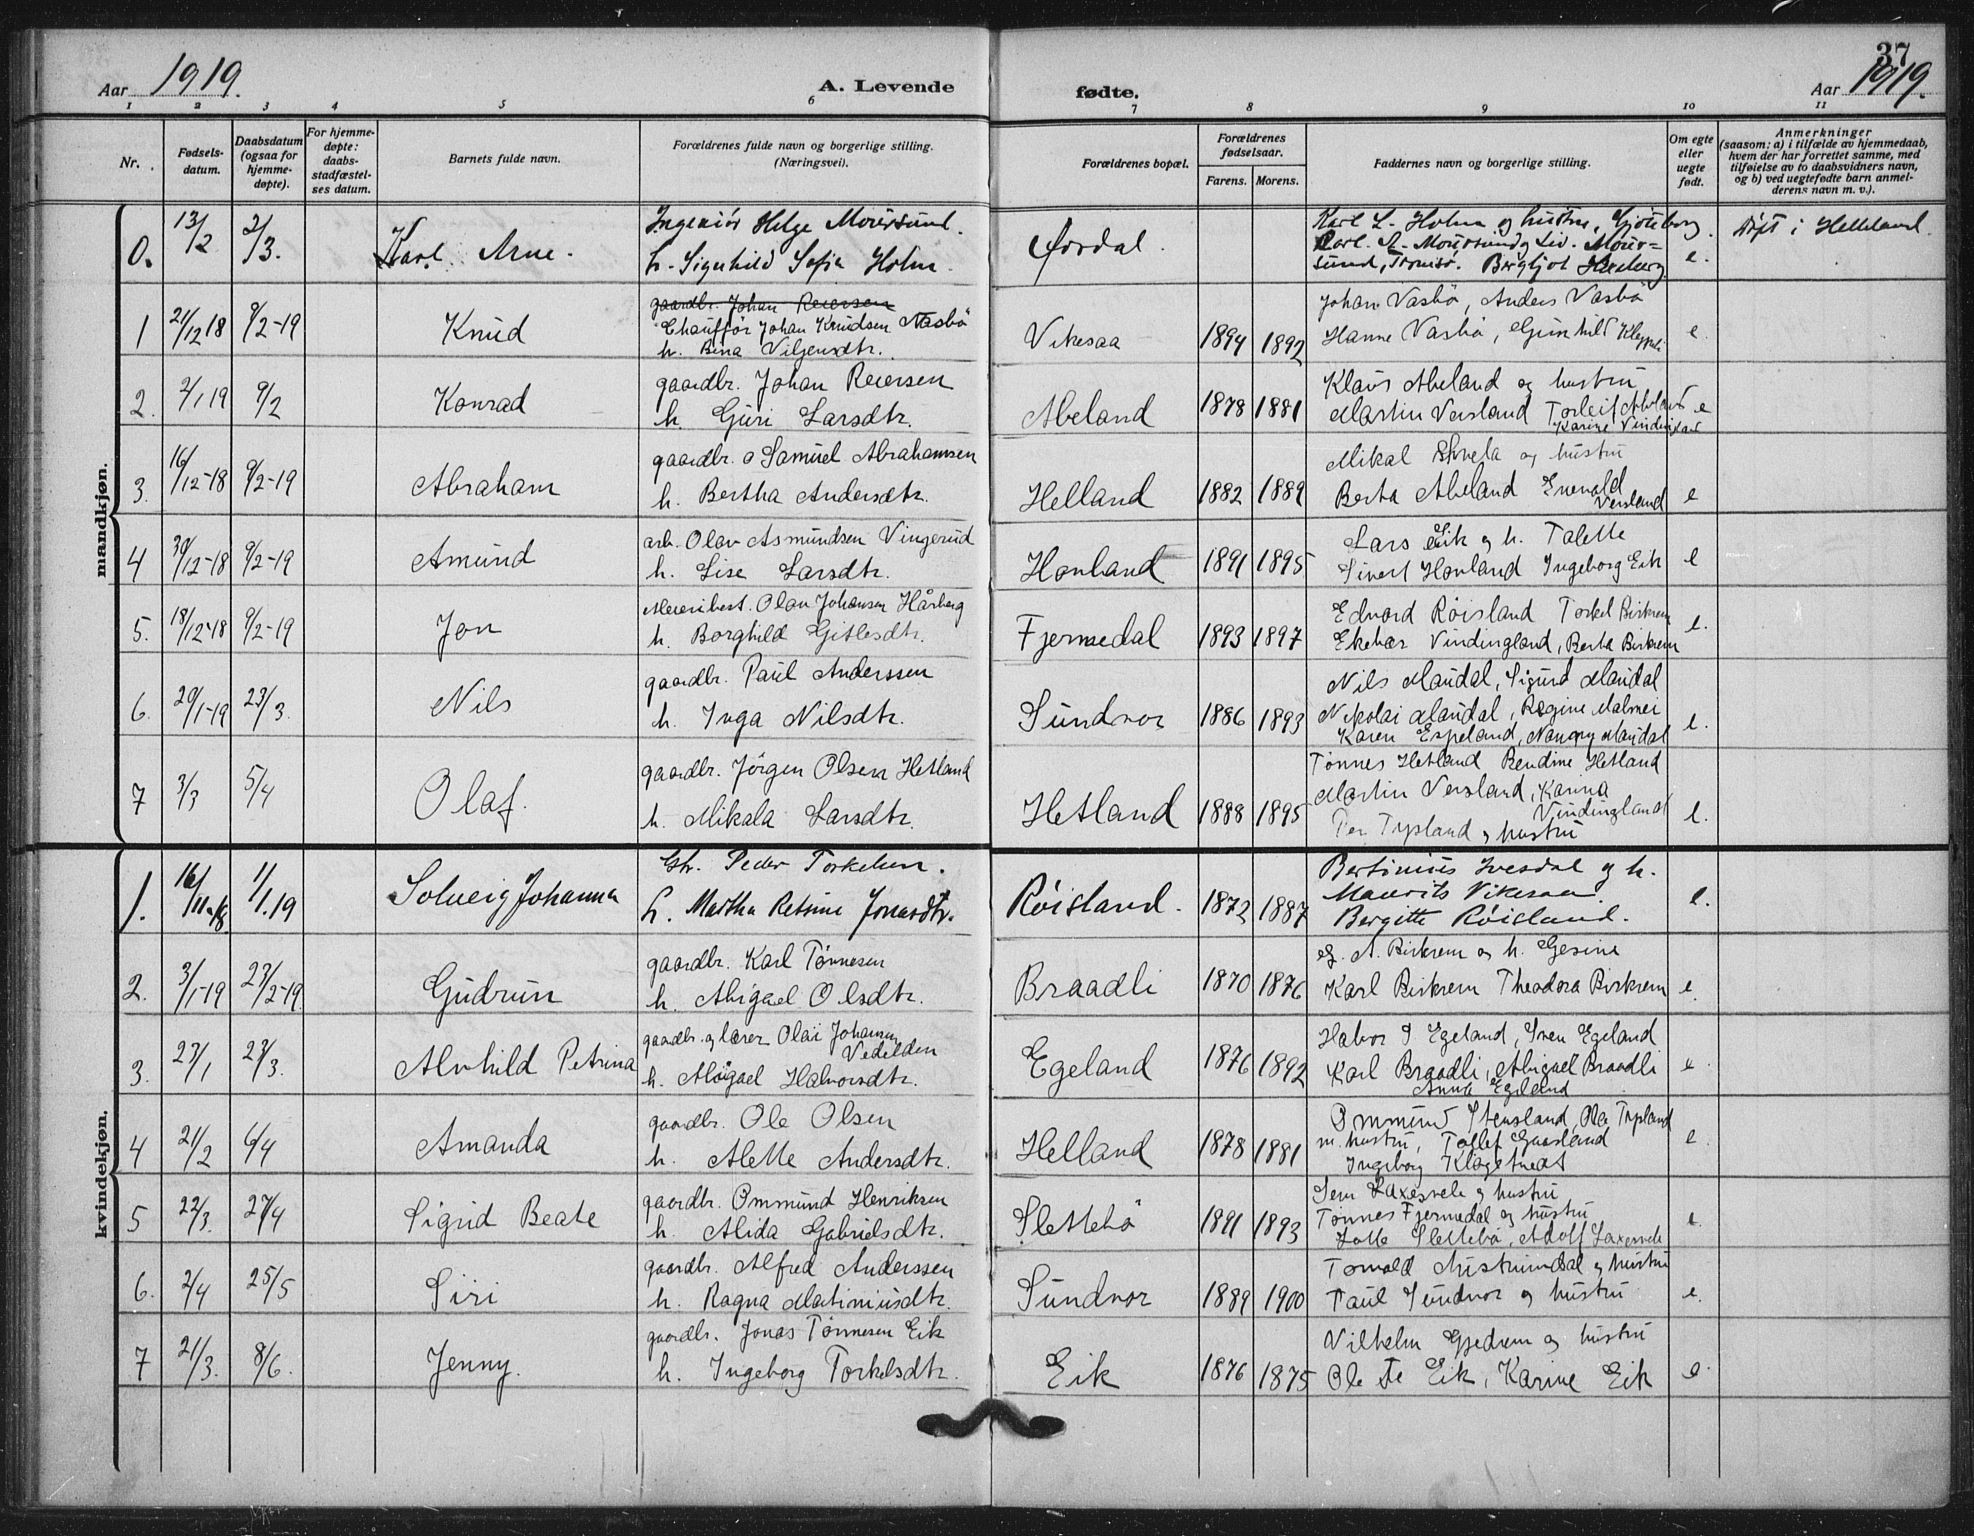 37
Aar 1919. A. Levende fødte. Aar 1919.
1 2 3 4 5 6 7 8 9 10 11
Nr. Fødsels-datum. Daabsdatum (ogsaa for hjemme-døpte). For hjemme-døpte: daabs-stadfæstel-ses datum. Barnets fulde navn. Forældrenes fulde navn og borgerlige stilling. (Næringsvei). Forældrenes bopæl. Forældrenes fødselsaar. Farens. Morens. Faddernes navn og borgerlige stilling. Om egte eller uegte født. Anmerkninger (saasom: a) i tilfælde av hjemmedaab, hvem der har forrettet samme, med tilføielse av to daabsvidners navn, og b) ved uegtefødte barn anmel-derens navn m. v.).
mandkjøn.
0. 13/2 2/3. Karl Arne. Ingeniör Helge MourSund.
h. Signhild Sofia Holm. Ørsdal.
Karl L. Holm og hustru, Gjöteborg.
Karl A. Moursund og Liv. Mour=
sund, Tromsö. Bergljot e. Döpt i Helleland.
1 21/12 18 9/2-19 Knud
gaardbr. Johan Reiersen
Chauffør Johan Knudsen Vasbö
h. Bina Vilgensdtr. Vikesaa 1894 1892
Johan Vasbö, Anders Vasbö
Hanne Vasbö, Gunhild e
2. 2/1 19 9/2 Konrad
gaardbr. Johan Reiersen
h. Guri Larsdtr. Abeland 1878 1881
Klaus Abeland og hustru
Martin Versland Torleif Abeland e
Karine Vindingland
3. 16/12-18 9/2-19 Abraham
gaardbr. o Samuel Abrahamsen
h. Bertha Andersdtr. Helland 1882 1889
Mikal og hustru
Berta Abeland Enevald
Versland e
4 30/12-18 9/2-19 Amund
arb. Olav Asmundsen Vingerud
h. Lise Larsdtr. Hovland 1891 1895
Lars Eik og h. Talette
Sivert Hovland Ingeborg Eik e
5. 18/12-18 9/2-19 Jon
Meieribest. Olav Johansen Hårberg
h. Borghild Gitlesdtr. Fjermedal 1893 1897
Edvard Røisland Torkel Birkrem
Vindingland, Berta Birkrem e.
6. 29/1-19 23/3. Nils
gaardbr. Paul Anderssen
h. Inga Nilsdtr. Sundvor 1886 1893
Nils Maudal, Sigurd Maudal
Nikolai Maudal, Regine Malmei
Karen Espeland, Nanny Maudal e.
7 3/3 5/4 Olaf.
gaardbr. Jörgen Olsen Hetland
h. Mikala Larsdtr. Hetland 1888 1895
Tönnes Hetland Rendine Hetland
Martin Versland, Karina
Vindingland
Per Typland og hustru e.
kvindekjøn.
1. 16/11-18. 1/1.19 Solveig Johanna
Gbr. Peder Torkelsen.
h. Martha Retsine Jonasdtr. Røisland. 1872 1887
Bertinius Ivesdal og h.
Maurits Vikesaa.
Bergitte Røisland. e.
2. 3/1-19 23/2-19 Gudrun
gaardbr. Karl Tønnesen
h. Abigael Olsdtr. Braadli 1870 1876
G. A. Birkrem og h. Gesine
Karl Birkrem Theodora Birkrem e.
3. 27/1 23/3. Alvhild Petrina
gaardbr. og lærer Olai Johannes
Vedelden
h. Abigael Halvorsdtr. Egeland 1876 1892
Halvor S Egeland, Sven Egeland
Karl Braadli, Abigael Braadli
Anna Egeland e
4 21/2 6/4 Amanda
gaardbr. Ole Olsen
h. Alette Andersdtr. Helland 1878 1881
Ommund Stensland, Ola Typland
m. hustru, Tollef Gaasland
Ingeborg Klagetvedt e.
5 22/3. 27/4 Sigrid Beate
gaardbr. Ommund Henriksen
h. Alida Gabrielsdtr. Slettebö 1891 1893
Sem Laxesvele og hustru
Tønnes Fjermedal og hustru
Slettebö, Adolf Laxesvele e.
6. 2/4 25/5 Siri
gaardbr. Alfred Anderssen
h. Ragna Martiniusdtr. Sundvor 1889 1900
Tomald Austrumdal og hustru
Paul Sundvor og hustru e.
7 21/3. 8/6. Jenny.
gaardbr. Jonas Tønnesen Eik
h. Ingeborg Torkelsdtr. Eik 1876 1875
Vilhelm Gjedrem og hustru
Ole Te Eik, Karine Eik e